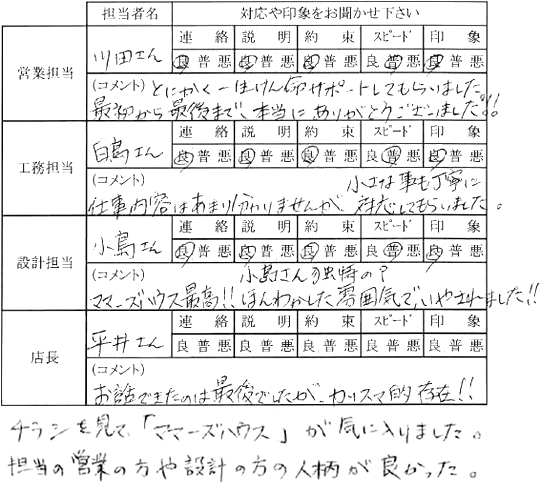 担当者名 対応や印象をお聞かせ下さい
営業担当 川田さん 連絡 説明 約束 スピード 印象
良普悪 良普悪 良普悪 良普悪 良普悪
(コメント) とにかく一生けん命サポートしてもらいました。
最初から最後まで、本当にありがとうございました!!
工務担当 白島さん 連絡 説明 約束 スピード 印象
良普悪 良普悪 良普悪 良普悪 良普悪
(コメント) 小さな事も丁寧に
仕事内容はあまり分かりませんが、対応してもらいました。
設計担当 小島さん 連絡 説明 約束 スピード 印象
良普悪 良普悪 良普悪 良普悪 良普悪
(コメント) 小島さん独特の?
ママーズハウス最高!!ほんわかした雰囲気でいやされました!!
店長 平井さん 連絡 説明 約束 スピード 印象
良普悪 良普悪 良普悪 良普悪 良普悪
(コメント)
お話できたのは最後でしたが、カリスマ的存在!!
チラシを見て、「ママーズハウス」が気に入りました。
担当の営業の方や設計の方の人柄が良かった。